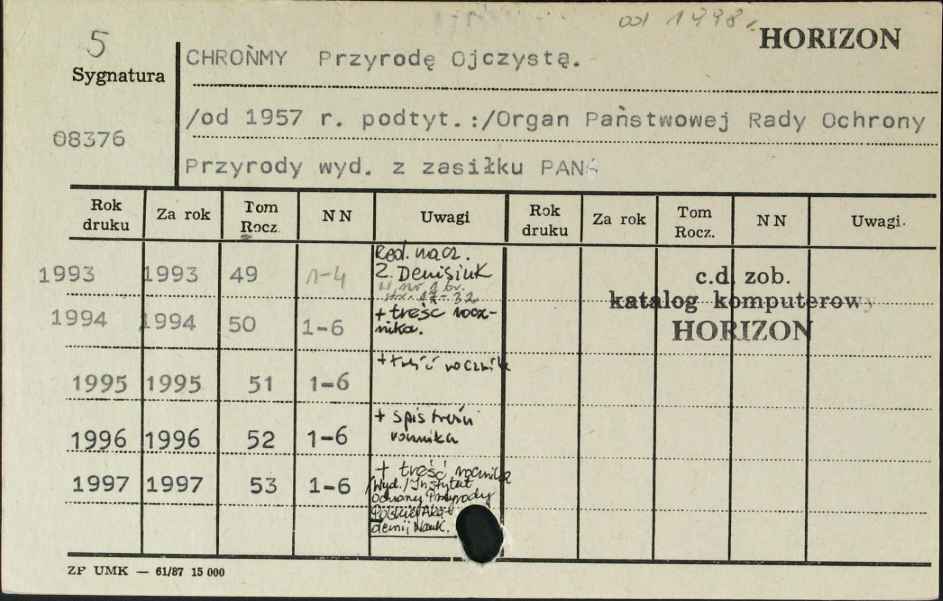 od 1998r.
HORIZON
5
Sygnatura
08376
CHROŃMY Przyrodę Ojczystą.
/od 1957 r. podtyt.:/Organ Państwowej Rady Ochrony
Przyrody wyd. z zasiłku PAN
Rok druku Za rok Tom Rocz. NN Uwagi Rok druku Za rok Tom Rocz. NN Uwagi.
1993 1993 49 1-4 Red. nacz.
Z. Denisiuk
w nr 1 br.
str. 17-32
1994 1994 50 1-6 + treść rocz-
nika.
1995 1995 51 1-6 + treść rocznika
1996 1996 52 1-6 + spis treści
rocznika
1997 1997 53 1-6 + treść rocznika
/Wyd./Instytut
Ochrony Przyrody
Polskiej Aka-
demii Nauk.
c.d. zob.
katalog komputerowy
HORIZON
ZP UMK — 61/87 15 000